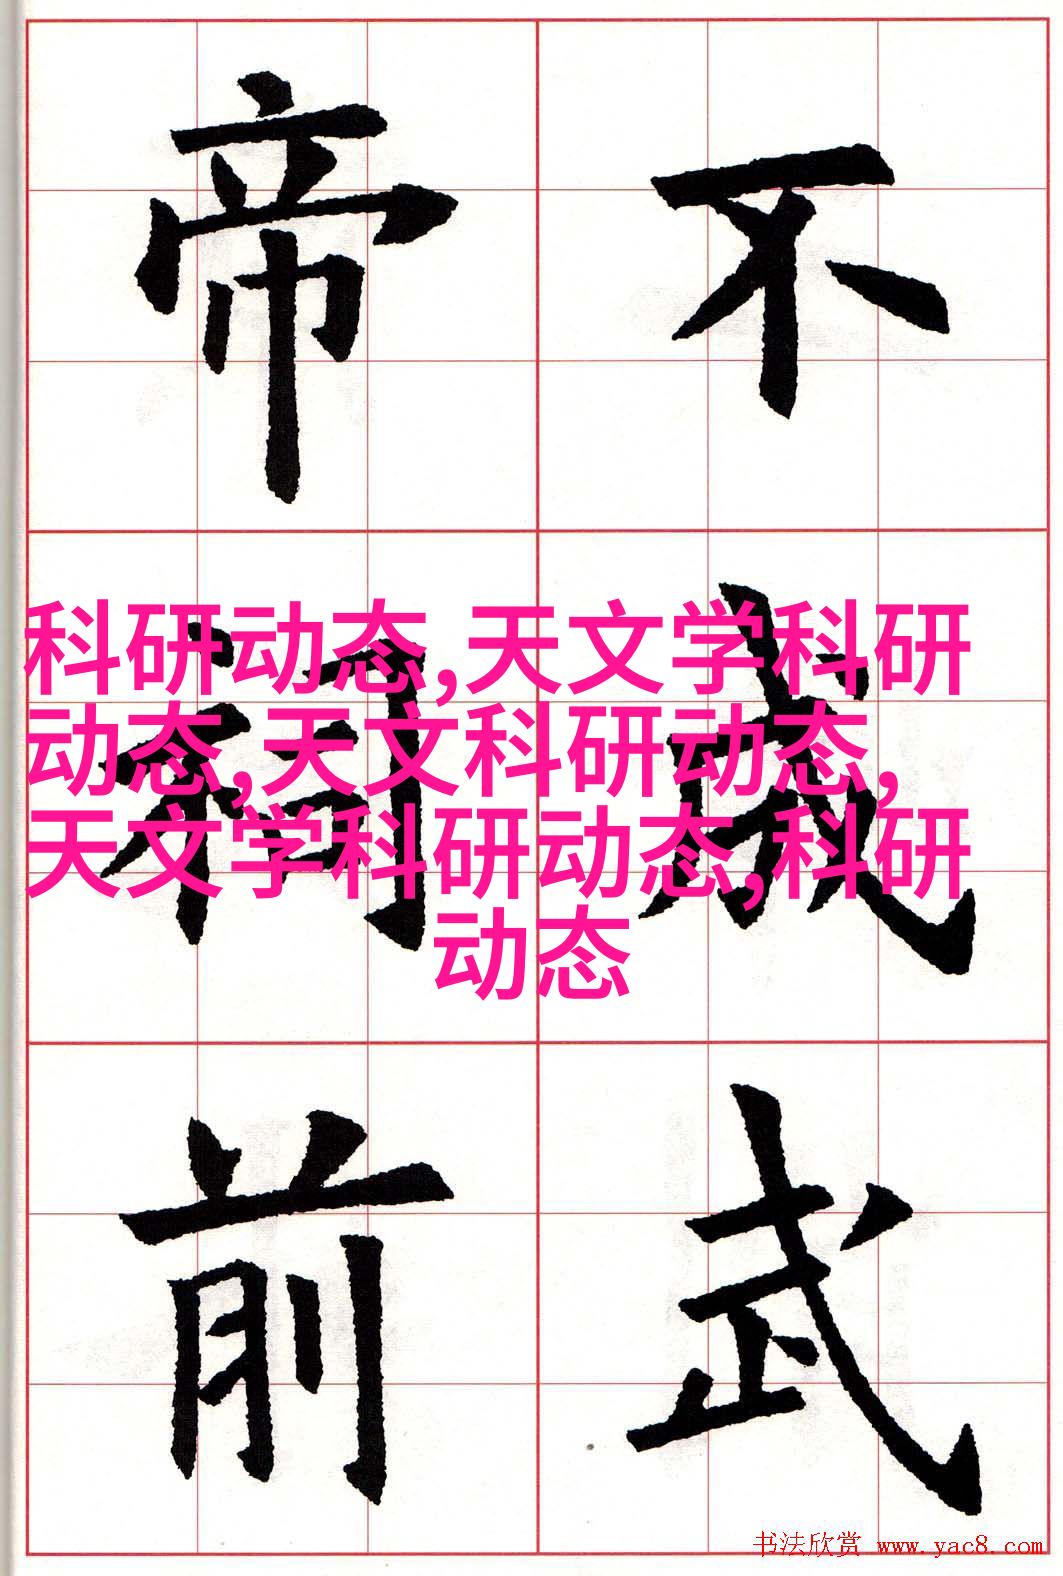 不成武
帝祠前
科研动态,天文学科研
动态,天文科研动态,
天文学科研动态,科研
动态
书法欣赏 www.yac8.com